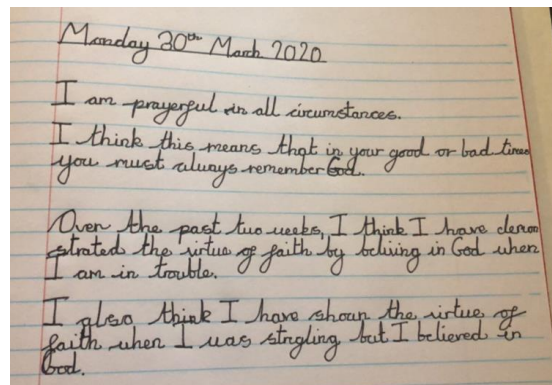 Monday 30th March 2020
I am prayerful in all circumstances.
I think this means that in your good or bad times
you must always remember God.
Over the past two weeks, I think I have demon
strated the virtue of faith by beliving in God when
I am in trouble.
I also think I have shown the virtue of
faith when I was strgling but I believed in
God.